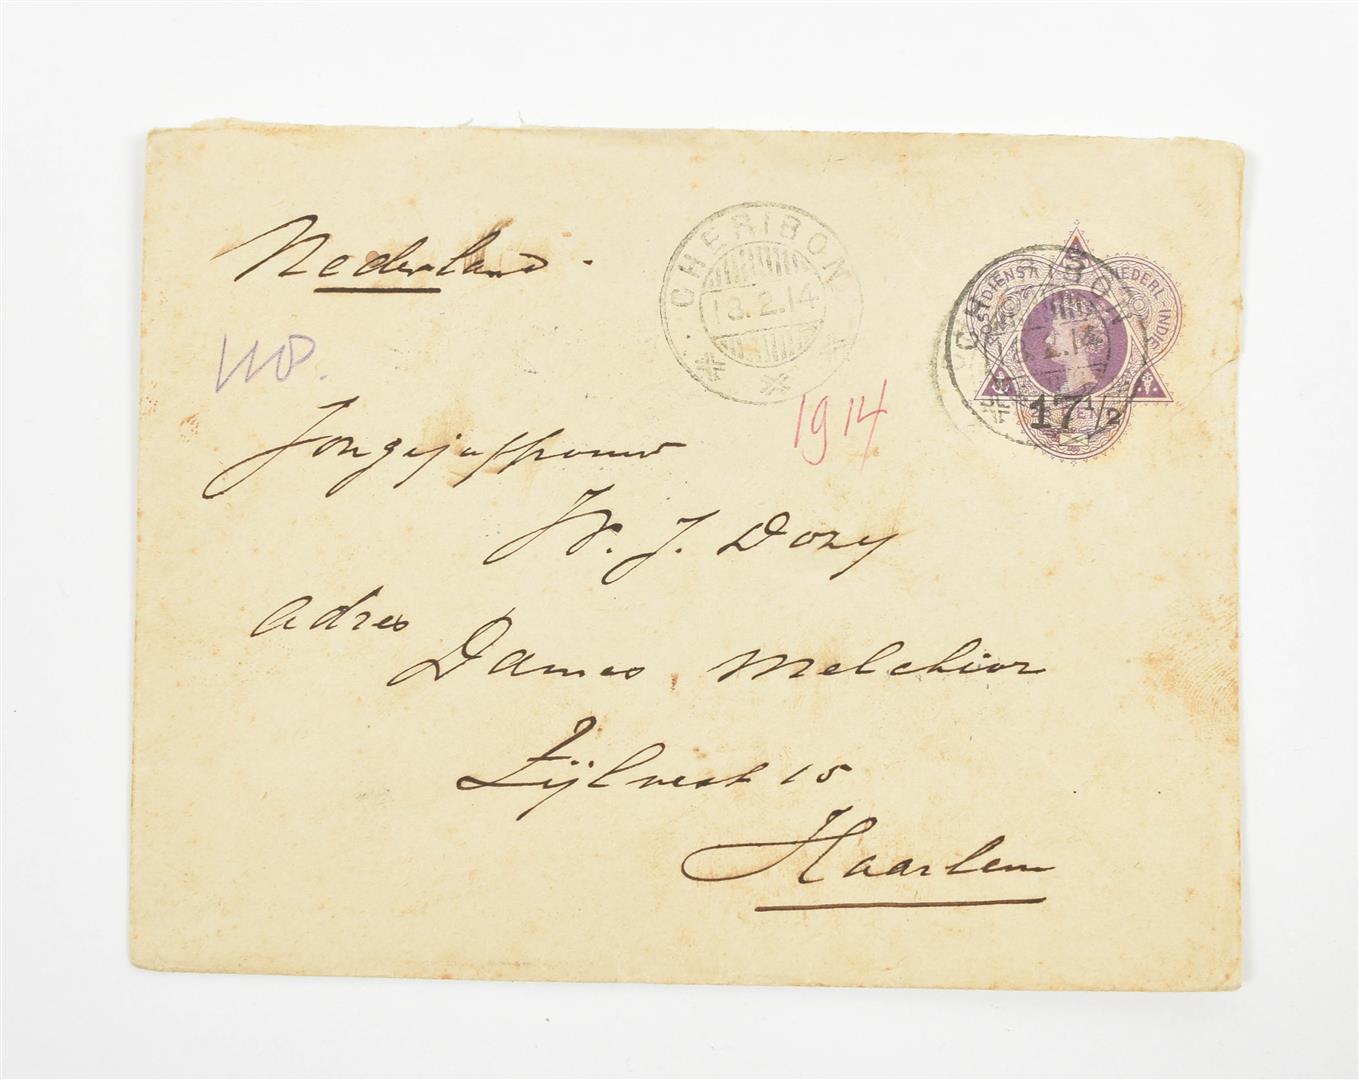 Nederland.
CHERIBON
18.2.14
POSTDIENST
NEDERL-INDIE
17 1/2
1914
Jongejuffrouw
W. J. Dozy
adres
Dames Melchior
Zijlvest 15
Haarlem